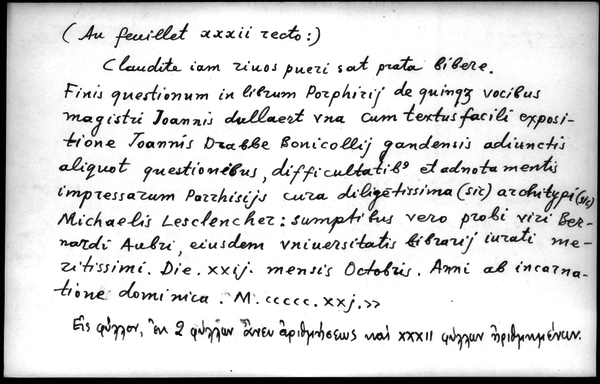 (Au feuillet xxxii recto:)
Claudite iam rivos pueri sat prata bibere.
Finis questionum in librum Porphirij de quinqꝫ vocibus
magistri Joannis dullaert vna cum textus facili exposi-
tione Joannis Drabbe Bonicollij gandensis adiunctis
aliquot questionibus, difficultatibꝰ et adnotamentis
impressarum Parrhisijs cura diligētissima (sic) architypi (sic)
Michaelis Lesclencher: sumptibus vero probi viri Ber-
nardi Aubri, eiusdem vniuersitatis librarij iurati me-
ritissimi. Die. xxij. mensis Octobris. Anni ab incarna-
tione dominica. M.ccccc.xxj.»
Εἰς φύλλον, ἐκ 2 φύλλων ἄνευ ἀριθμήσεως καὶ XXXII φύλλων ἠριθμημένων.